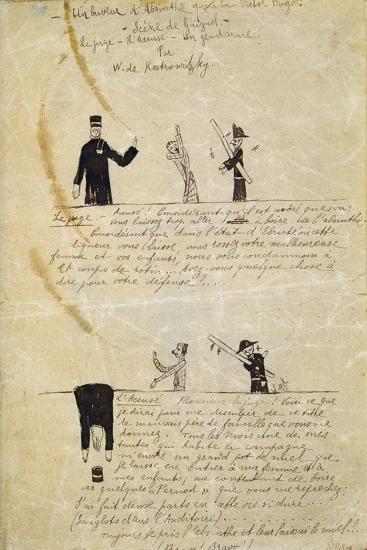 Un buveur d'Absinthe qui a lu Victor Hugo
- Scène de Guignol. -
Le juge - L'Accusé - Un gendarme.
Par
W. de Kostrowitzky.
Le juge - Accusé! Considérant qu'il est avéré que vous
vous laissez trop aller à boire de l'absinthe
Considérant que dans l'état d'Ebriété où cette
liqueur vous laisse, vous rossez votre malheureuse
femme et vos enfants, nous vous condamnons à
corps de rotin... Avez-vous quelque chose à
dire pour votre défense?....
L'Accusé Monsieur ! Voici ce que
je dirai pour me disculper de ce titre
de mauvais père de famille que vous me
donnez. Tous les mois une de mes
tantes qui habite la campagne
m'envoie un grand pot de miel que
je laisse en entier à ma femme et à
mes enfants; me contentant de boire
ces quelques "Pernod" que vous me reprochez.
J'ai fait deux parts en cette vie si dure...
(Sanglots dans l'Auditoire)
Toujours je pris l'absinthe et leur laissai le miel!!
Bravo!